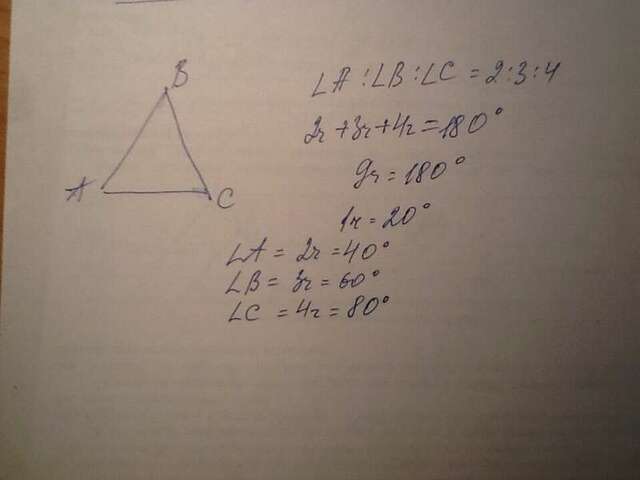 B
A
C
∠A:∠B:∠C = 2:3:4
2ч+3ч+4ч=180°
9ч=180°
1ч=20°
∠A = 2ч=40°
∠B = 3ч=60°
∠C = 4ч=80°